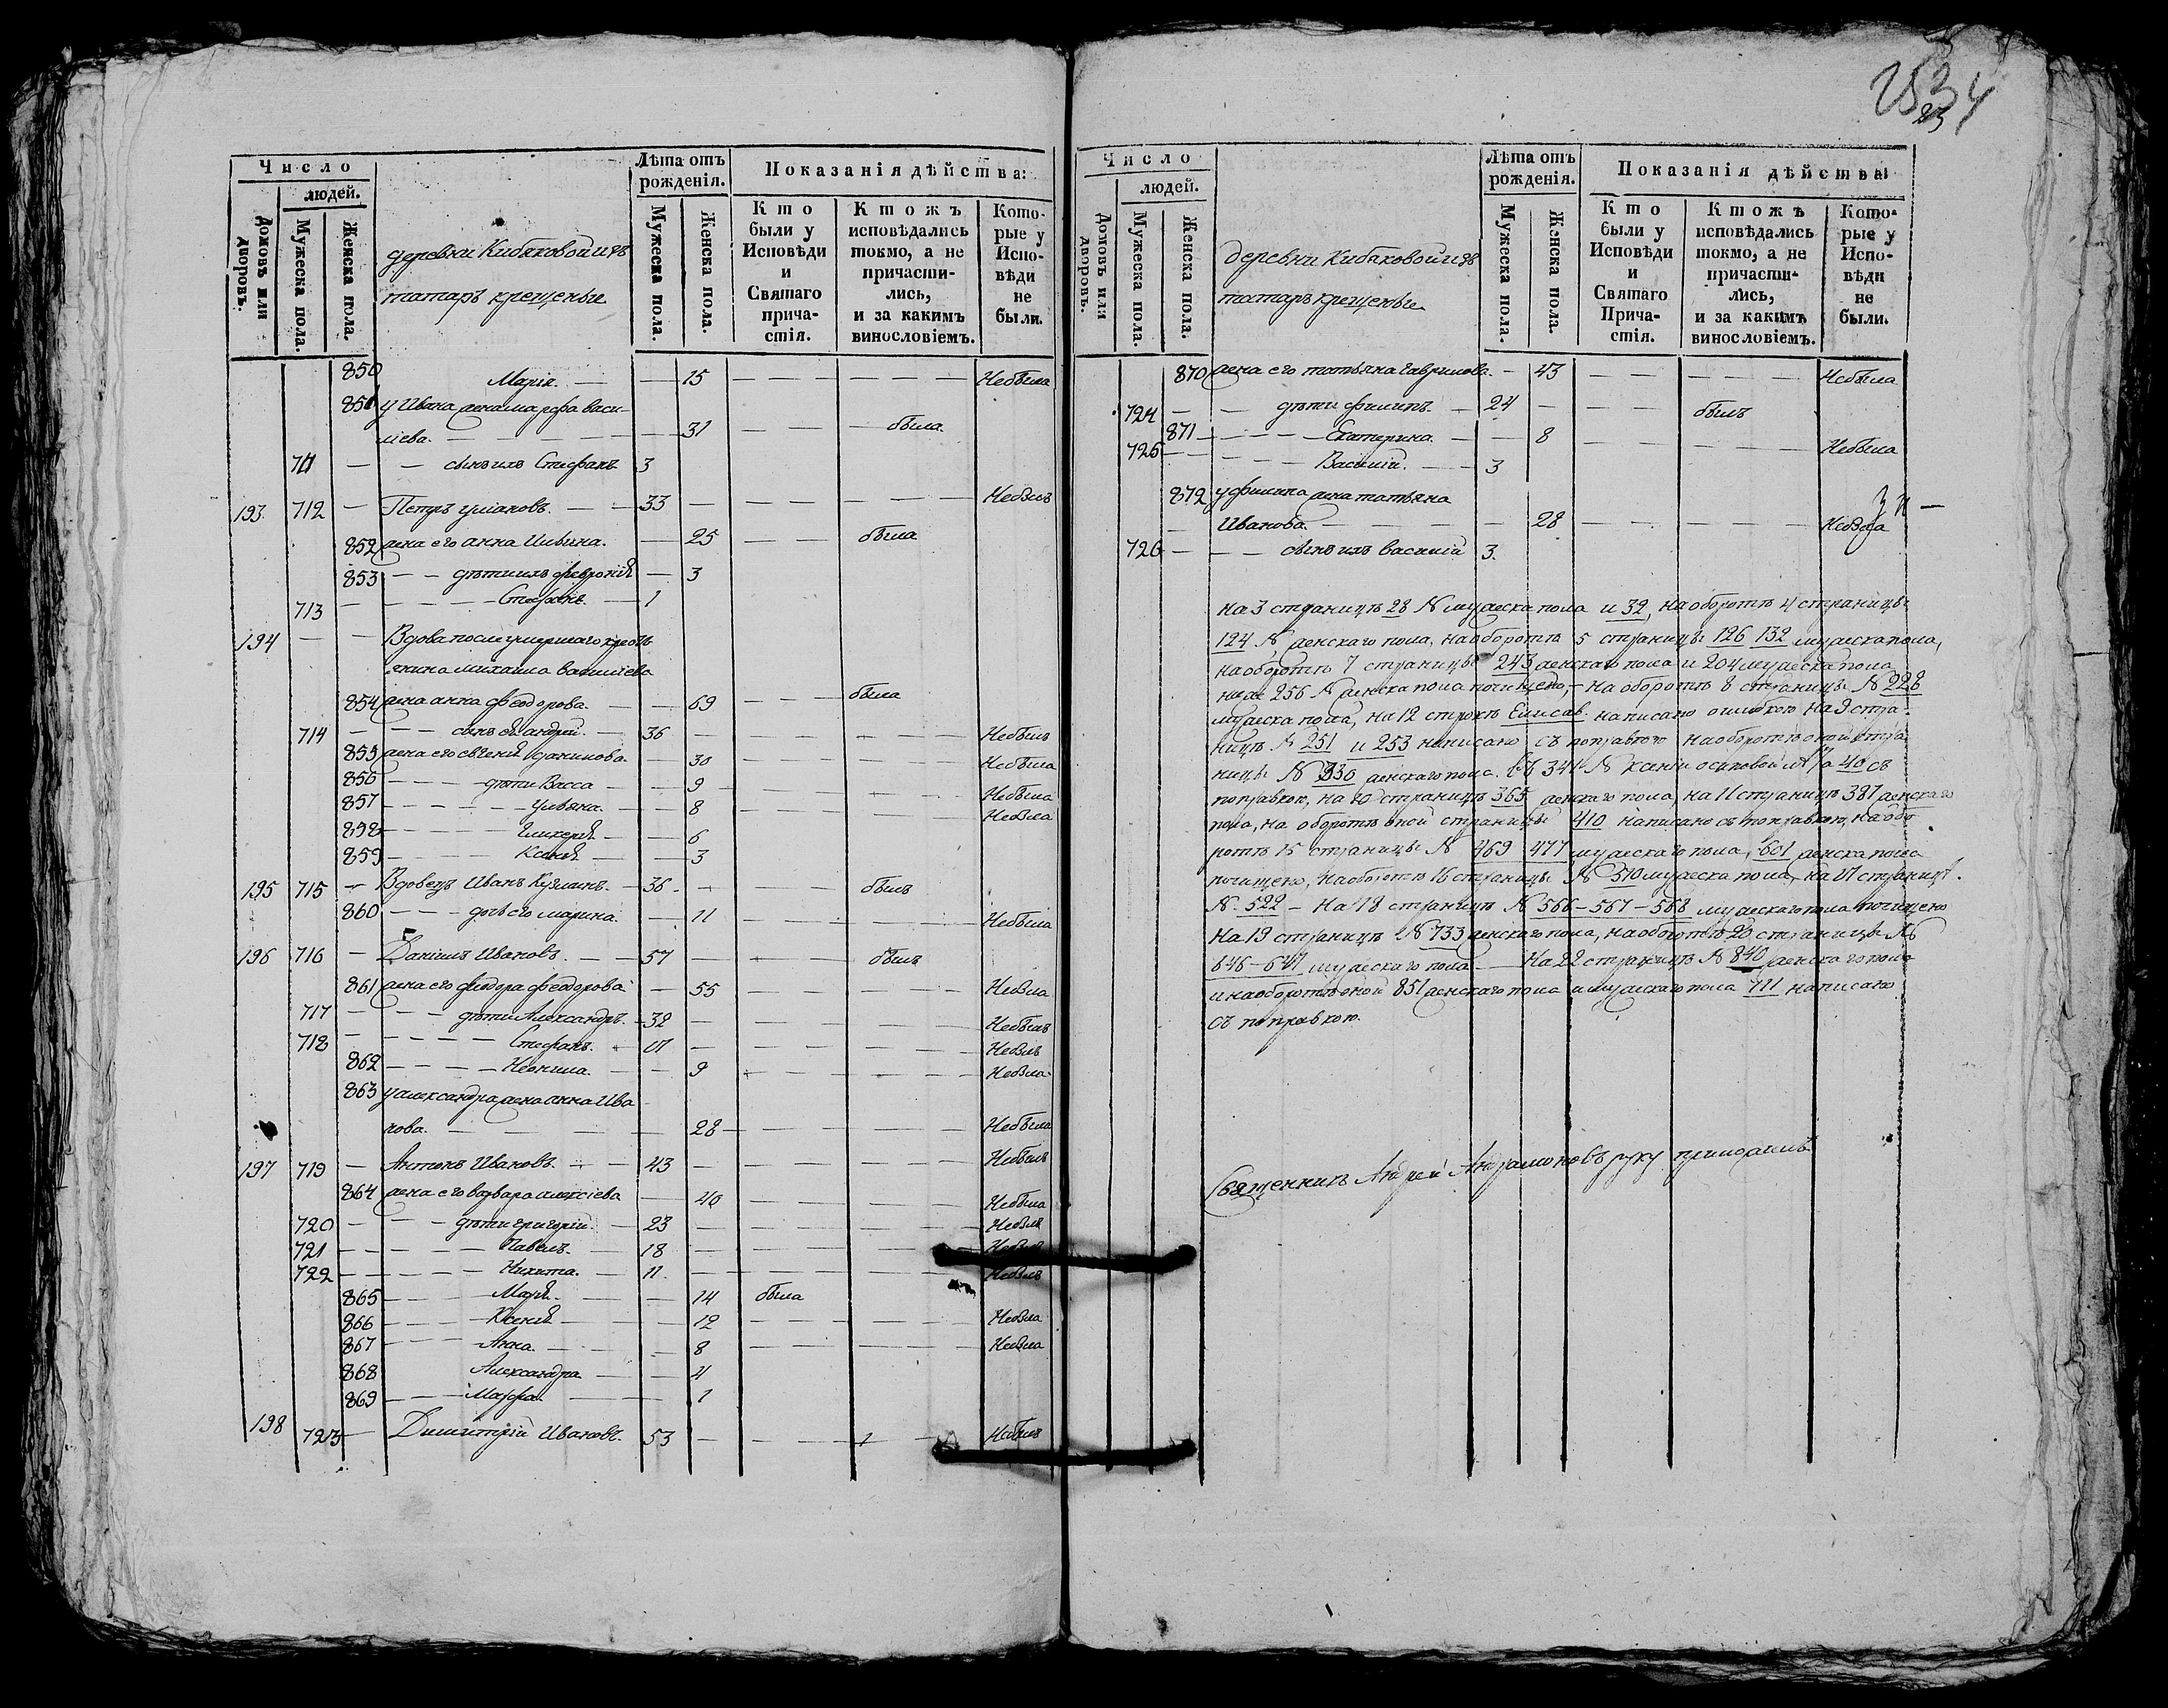 2534
23
Число
людей.
Домовъ или дворовъ.
Мужеска пола.
Женска пола.
деревни Кибяковой изъ
татаръ крещеные
Лѣта отъ рожденія.
Мужеска пола.
Женска пола.
Показанія дѣйства:
Кто были у Исповѣди и Святаго причастія.
Ктожъ исповѣдались токмо, а не причастились, и за какимъ винословіемъ.
Которые у Исповѣди не были.
850 Марія. — — 15 — — — — Небыла
851 у Ивана жена марфа васи-
ліева. — — 31 — — была
711 — — сынъ ихъ Стефанъ 3
193. 712 — Петръ — 33 — — — — Небылъ
852 жена его анна Ильина. — 25 — — была
853 — — дѣти ихъ феврониѧ — 3
713 — — — Стефанъ. — 1
194 — — Вдова после умершаго кресть
янина михаила василіева
854 жена анна Феодорова. — 69 — — была
714 — — сынъ еѧ андрей. — 36 — — — Небылъ
855 жена его евгениѧ данилова — 30 — — Небыла
856 — — дѣти Васса — 9 — — Небыла
857 — — — Ульяна. — 8 — — Небыла
858 — — — Гликериѧ — 6
859 — — — Ксениѧ — 3
195 715 — Вдовецъ Иванъ Кузминъ. — 36. — — былъ
860 — — дочь его марина. — 11 — — Небыла
196 716 — Даніилъ Ивановъ. — 57 — — былъ
861 жена его феодора феодорова — 55 — — Небыла
717 — — дѣти Александръ. — 32 — — Небылъ
718 — — — Стефанъ. — 17 — — Небылъ
862 — — — Неонила. — 9 — — Небыла
863 у александра жена анна Ива
нова. — — 28 — — Небыла
197 719 — Антонъ Ивановъ. — 43 — — Небылъ
864 жена его варвара алексіева — 40 — — Небыла
720 — — дѣти григорій. — 23 — — Небылъ
721 — — — Павелъ. — 18 — — Небылъ
722 — — — Никита. — 11. — — Небылъ
865 — — Мариѧ. — 14 была
866 — — Ксениѧ — 12 — — Небыла
867 — — Анна. — 8 — — Небыла
868 Александра — 4
869 — — Марфа. — 1
198 723 — Димитрій Ивановъ. 53 — — Небылъ
Число
людей.
Домовъ или дворовъ.
Мужеска пола.
Женска пола.
деревни Кибяковой изъ
татаръ крещеные
Лѣта отъ рожденія.
Мужеска пола.
Женска пола.
Показанія дѣйства:
Кто были у Исповѣди и Святаго Причастія.
Ктожъ исповѣдались токмо, а не причастились, и за какимъ винословіемъ.
Которые у Исповѣди не были.
870 жена его татьяна гаврилова. — 43 — — Небыла
724 — — дѣти филипъ. — 24 — — былъ
871 — — — Екатерина. — 8 — — Небыла
725 — — — Василій. — 3
872 у филипа жена татьяна
Иванова. — — 28 — — Небыла
726 — — сынъ ихъ василій 3.
на 3 страницѣ 28 № мужеска пола и 32, на оборотѣ 4 страницы
124 № женскаго пола, на оборотѣ 5 страницы 126 132 мужеска пола,
на оборотѣ 7 страницы 243 женскаго пола и 204 мужеска пола
ниже 256 № женска пола почищено, — на оборотѣ 8 страницы № 228
мужеска пола, на 12 строкѣ Елисав. написано ошибкою на 9 стра-
ницѣ № 251 и 253 написано съ поправкою на оборотѣ оной стра
ницы № 330 женскаго пола. 341 № 40 съ
поправкою, на 10 страницѣ 365 женскаго пола, на 11 страницѣ 387 женскаго
пола, на оборотѣ оной страницы 410 написано съ поправкою, на обо
ротѣ 15 страницы № 469 477 мужескаго пола, 601 женска пола
почищено, на оборотѣ 16 страницы № 510 мужеска пола, на 17 страниц.
№. 522 — На 18 страницѣ № 566 — 567 — 568 мужескаго пола почищено
На 19 страницѣ № 733 женскаго пола, на оборотѣ 20 страницы №
646 — 647 мужескаго пола — На 22 страницѣ № 840 женскаго пола
и на оборотѣ оной 851 женскаго пола и мужескаго пола 711 написано
съ поправкою.
Священникъ Андрей руку приложилъ